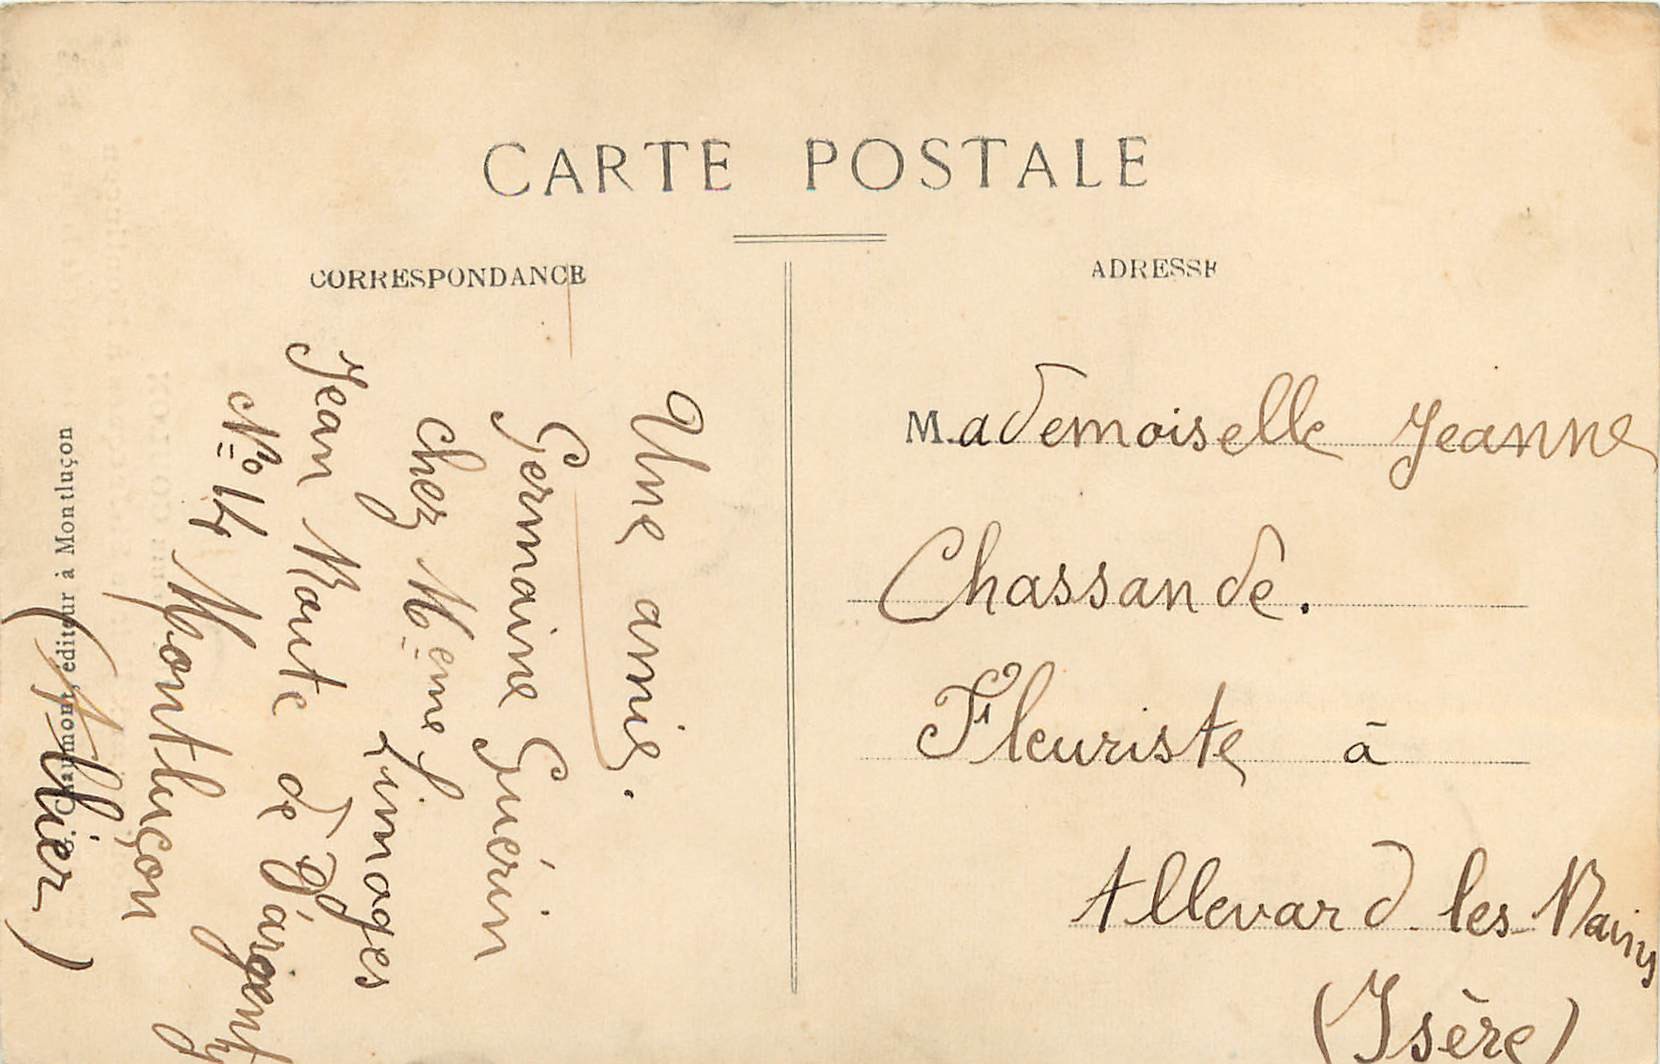 CARTE POSTALE
CORRESPONDANCE
ADRESSE
Une amie.
Germaine Guérin
chez Meme J. Limoges
Jean Route de D'argenty
No 14 Montluçon
(Allier)
Mademoiselle Jeanne
Chassande.
Fleuriste à
Allevard les Bains
(Isère)
Chaumont, éditeur à Montluçon